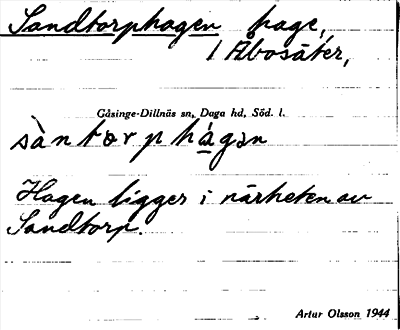 Sandtorphagen hage,
1 Åbosäter,
Gåsinge-Dillnäs sn, Daga hd, Söd. l.
sàntorphágən
Hagen ligger i närheten av
Sandtorp.
Artur Olsson 1944